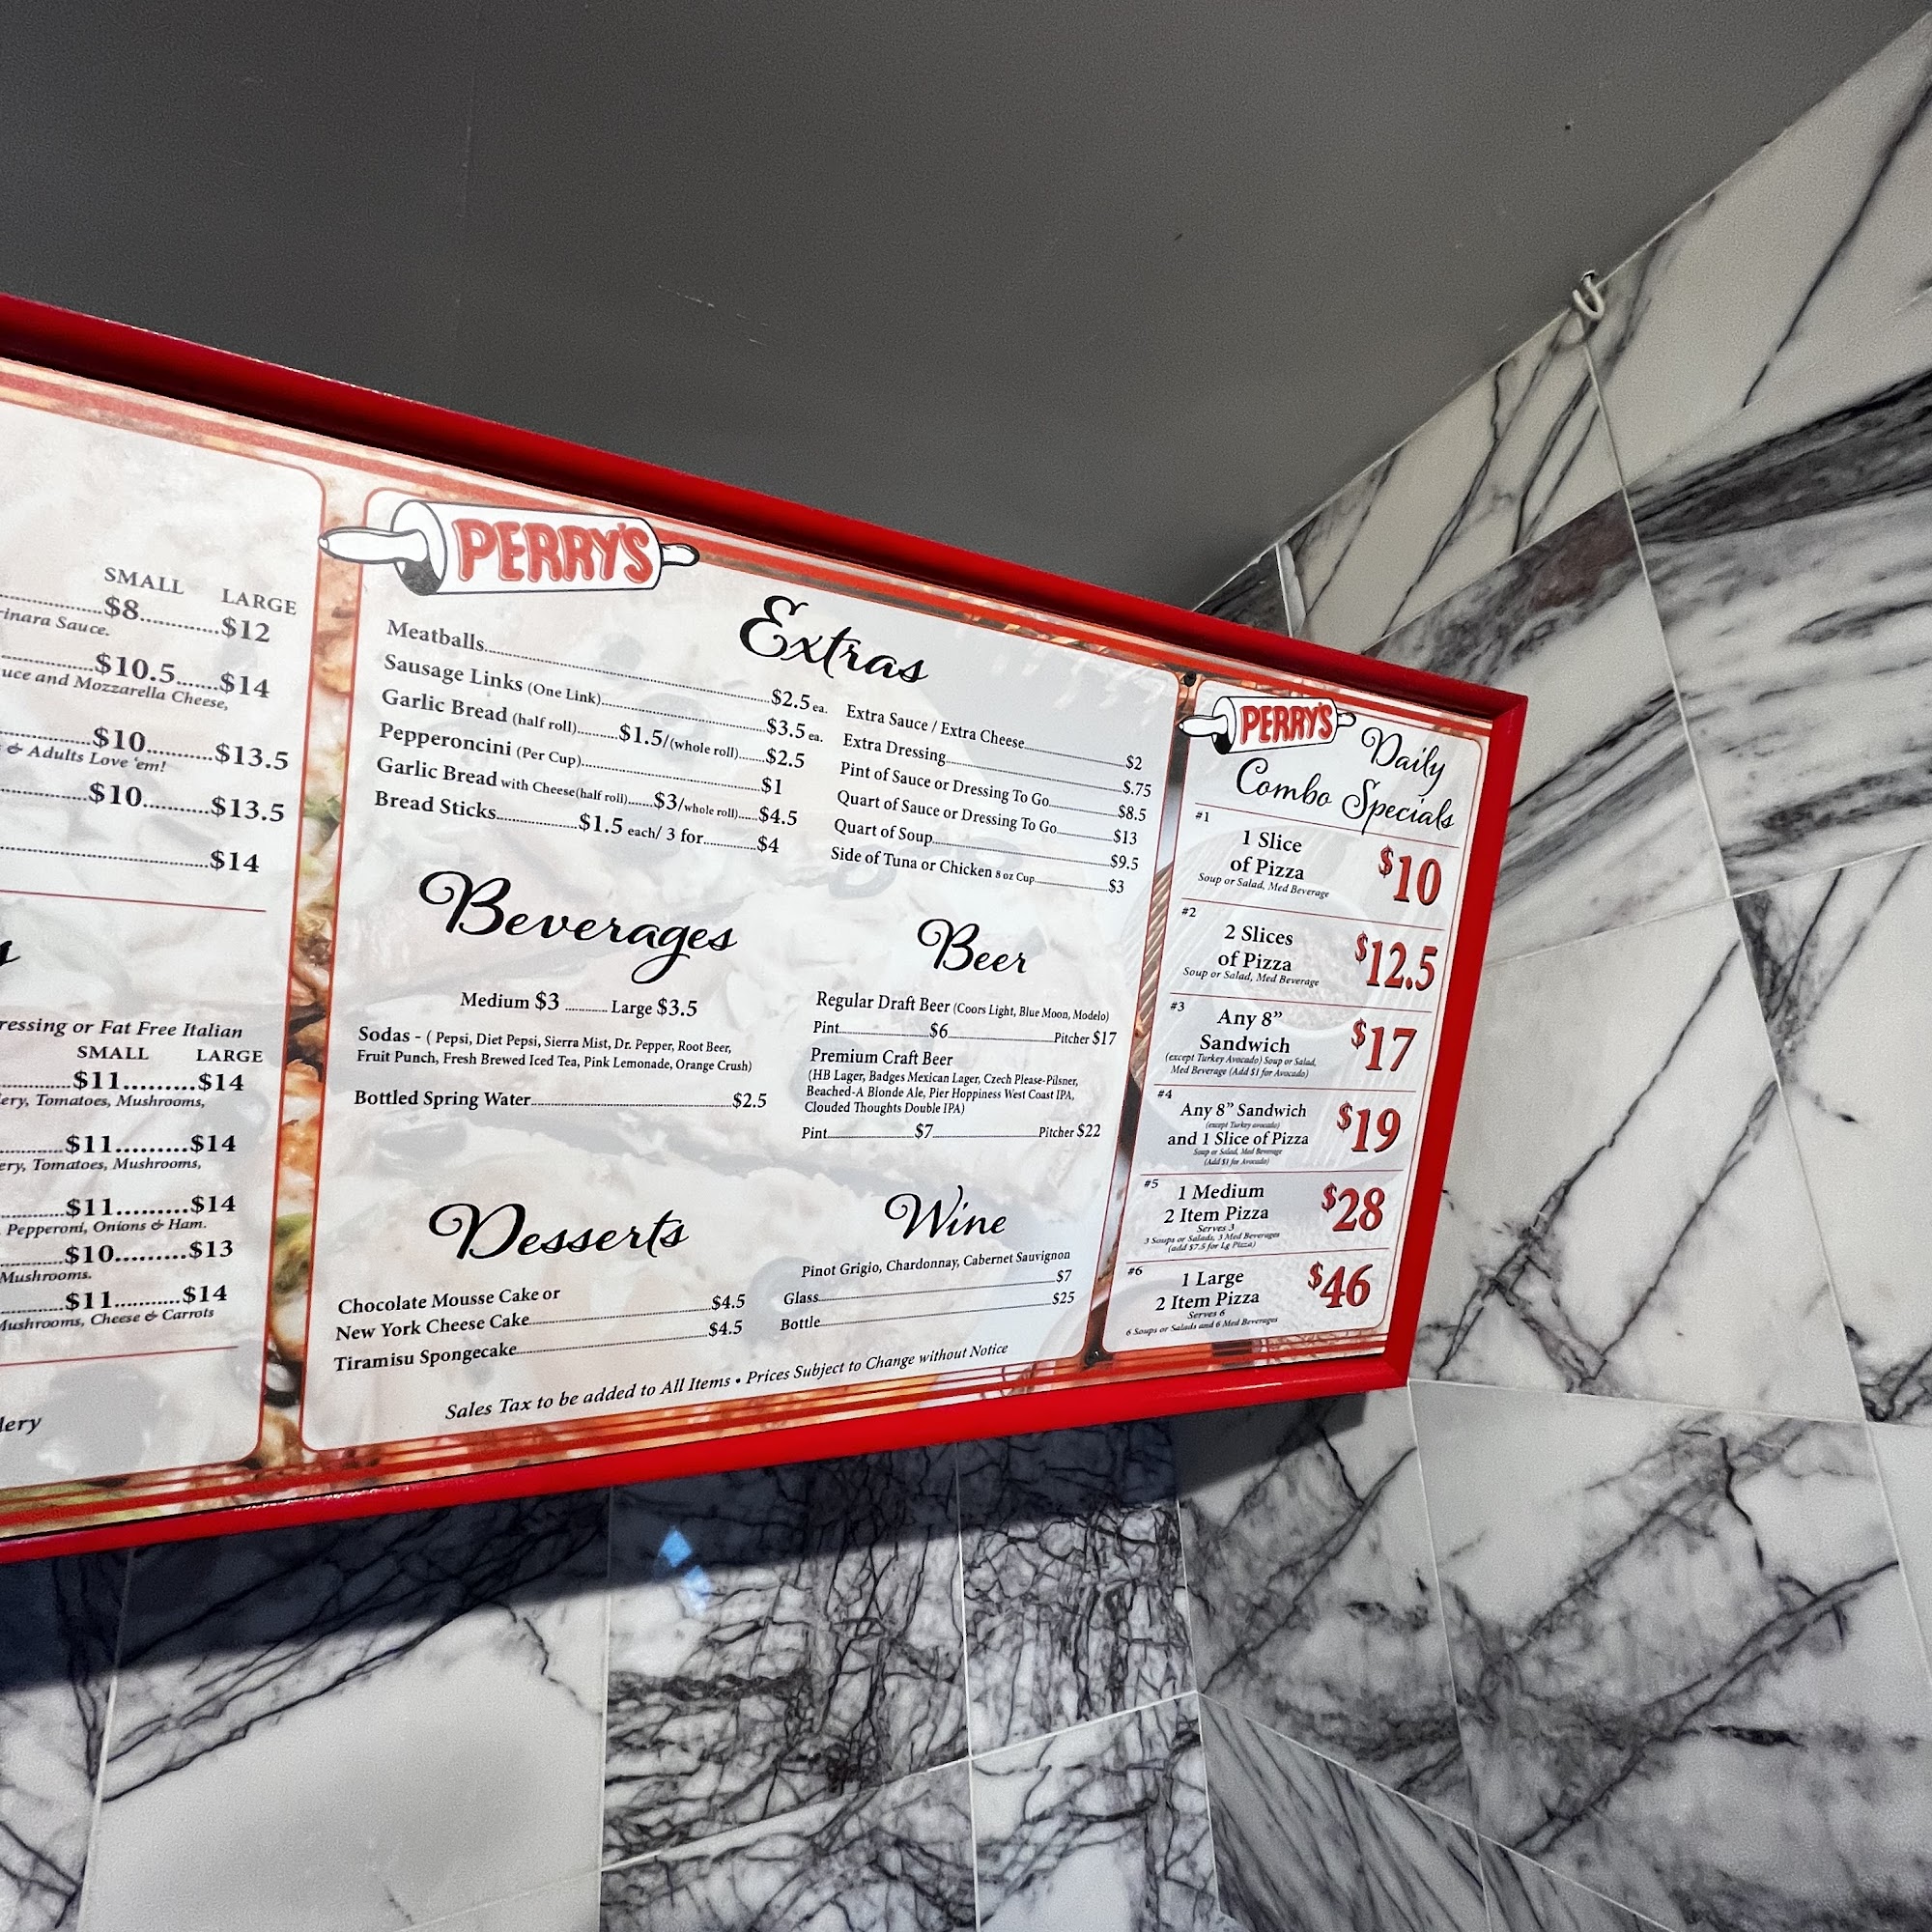 SMALL LARGE
$8 $12
rinara Sauce.
$10.5 $14
uce and Mozzarella Cheese,
$10 $13.5
& Adults Love 'em!
$10 $13.5
$14
s
ressing or Fat Free Italian
SMALL LARGE
$11 $14
lery, Tomatoes, Mushrooms,
$11 $14
ery, Tomatoes, Mushrooms,
$11 $14
Pepperoni, Onions & Ham.
$10 $13
Mushrooms.
$11 $14
Mushrooms, Cheese & Carrots
lery
PERRY'S
Extras
Meatballs $2.5 ea.
Sausage Links (One Link) $3.5 ea.
Garlic Bread (half roll) $1.5/(whole roll) $2.5
Pepperoncini (Per Cup) $1
Garlic Bread with Cheese(half roll) $3/whole roll) $4.5
Bread Sticks $1.5 each/ 3 for $4
Extra Sauce / Extra Cheese $2
Extra Dressing $.75
Pint of Sauce or Dressing To Go $8.5
Quart of Sauce or Dressing To Go $13
Quart of Soup $9.5
Side of Tuna or Chicken 8 oz Cup $3
Beverages
Medium $3 Large $3.5
Sodas - ( Pepsi, Diet Pepsi, Sierra Mist, Dr. Pepper, Root Beer,
Fruit Punch, Fresh Brewed Iced Tea, Pink Lemonade, Orange Crush)
Bottled Spring Water $2.5
Beer
Regular Draft Beer (Coors Light, Blue Moon, Modelo)
Pint $6 Pitcher $17
Premium Craft Beer
(HB Lager, Badges Mexican Lager, Czech Please-Pilsner,
Beached-A Blonde Ale, Pier Hoppiness West Coast IPA,
Clouded Thoughts Double IPA)
Pint $7 Pitcher $22
Desserts
Chocolate Mousse Cake or
New York Cheese Cake $4.5
Tiramisu Spongecake $4.5
Wine
Pinot Grigio, Chardonnay, Cabernet Sauvignon
Glass $7
Bottle $25
Sales Tax to be added to All Items • Prices Subject to Change without Notice
PERRY'S Daily
Combo Specials
#1
1 Slice
of Pizza
Soup or Salad, Med Beverage
$10
#2
2 Slices
of Pizza
Soup or Salad, Med Beverage
$12.5
#3
Any 8"
Sandwich
(except Turkey Avocado) Soup or Salad,
Med Beverage (Add $1 for Avocado)
$17
#4
Any 8" Sandwich
(except Turkey avocado)
and 1 Slice of Pizza
Soup or Salad, Med Beverage
(Add $1 for Avocado)
$19
#5
1 Medium
2 Item Pizza
Serves 3
3 Soups or Salads, 3 Med Beverages
(add $7.5 for Lg Pizza)
$28
#6
1 Large
2 Item Pizza
Serves 6
6 Soups or Salads and 6 Med Beverages
$46